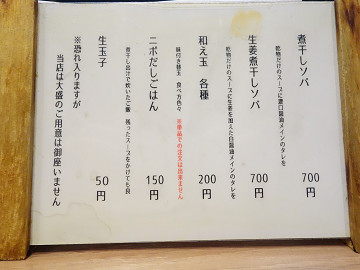 煮干しソバ 700円
乾物だけのスープに濃口醤油メインのタレを
生姜煮干しソバ 700円
乾物だけのスープに生姜を加えた白醤油メインのタレを
和え玉 各種 200円
味付き替玉 食べ方色々 ※単品での注文は出来ません
ニボだしごはん 150円
煮干し出汁で炊いたご飯 残ったスープをかけても良
生玉子 50円
※恐れ入りますが
当店は大盛のご用意は御座いません